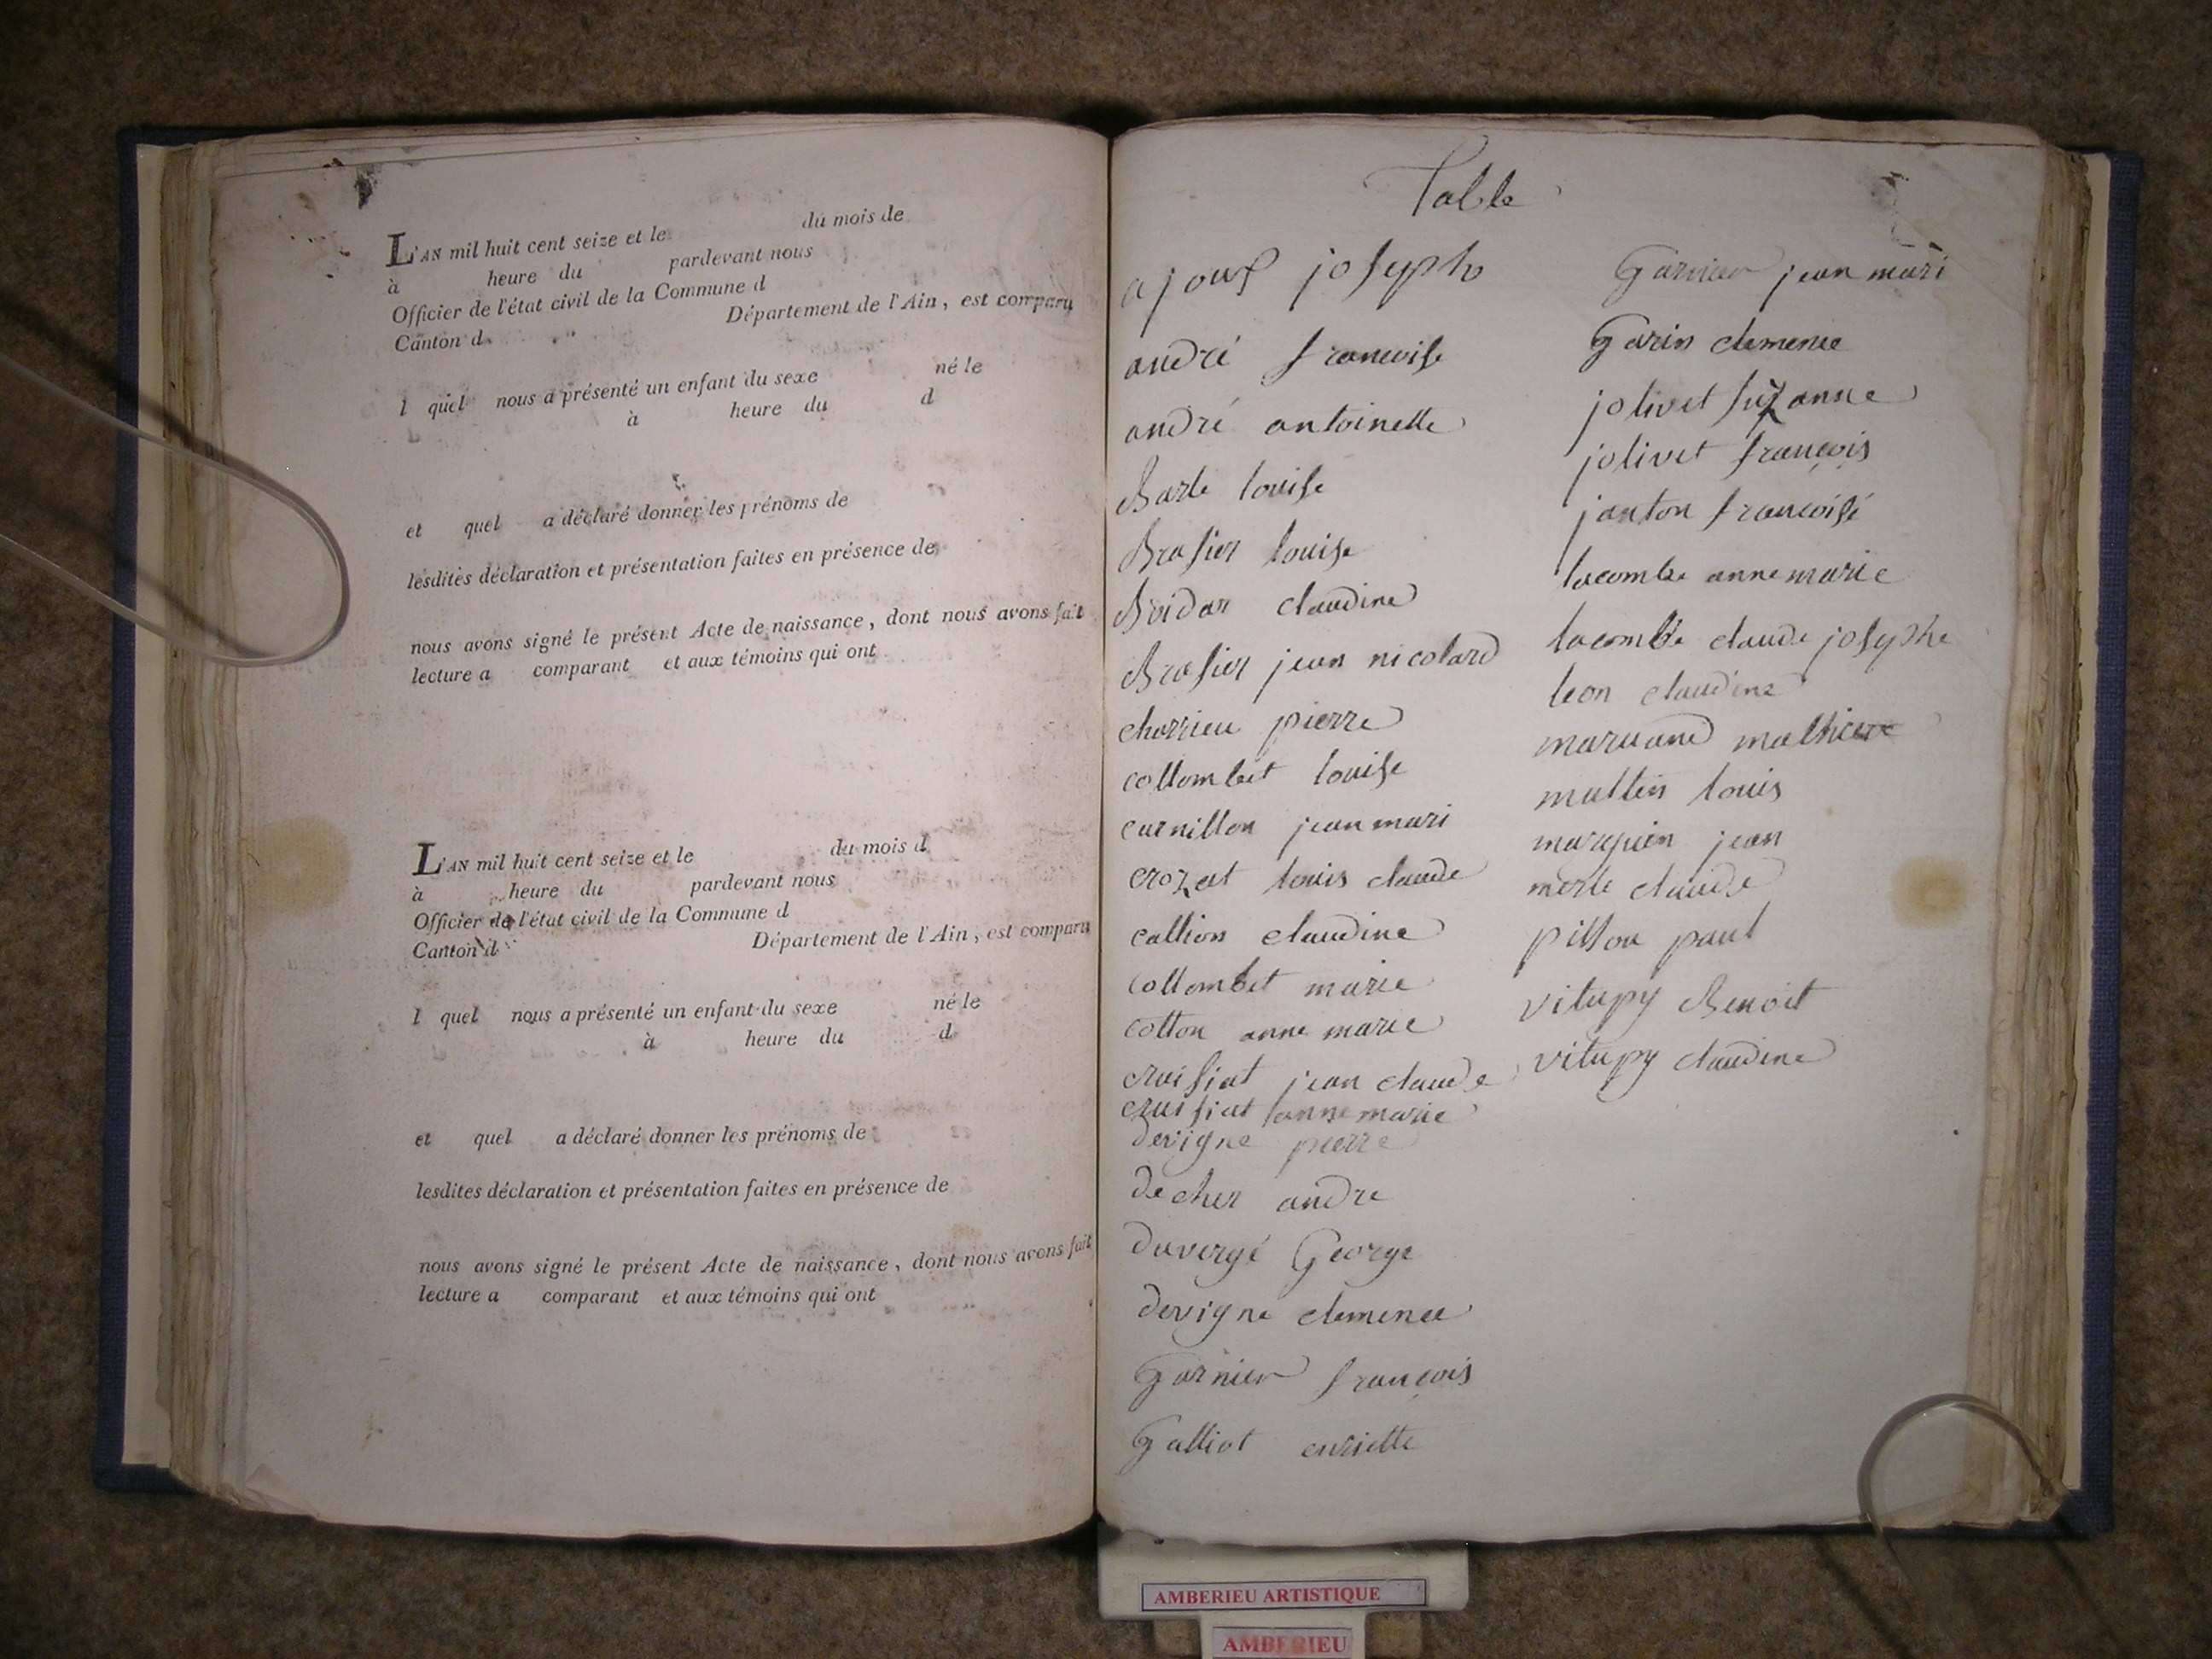 du mois de
L'AN mil huit cent seize et le
à heure du pardevant nous
Officier de l'état civil de la Commune d
Canton d Département de l'Ain, est comparu
l quel nous a présenté un enfant du sexe né le
à heure du d
et quel a déclaré donner les prénoms de
lesdites déclaration et présentation faites en présence de
nous avons signé le présent Acte de naissance, dont nous avons fait
lecture a comparant et aux témoins qui ont
L'AN mil huit cent seize et le du mois d
à heure du pardevant nous
Officier de l'état civil de la Commune d
Canton d Département de l'Ain, est comparu
l quel nous a présenté un enfant du sexe né le
à heure du d
et quel a déclaré donner les prénoms de
lesdites déclaration et présentation faites en présence de
nous avons signé le présent Acte de naissance, dont nous avons fait
lecture a comparant et aux témoins qui ont
Table
joseph
andré francoise
andré antoinette
Barle louise
Brasier louise
Bridar claudine
Brasier jean nicolard
charrieu pierre
collombet louise
curnillon jean mari
crozat louis claude
callion claudine
collombet marie
cotton anne marie
cruisiat jean claude
cruisiat anne marie
devigne pierre
decher andre
duvergé George
devigne clemence
Garnier françois
Galliot enriette
Garnier jean mari
Garin clemence
jolivet suzanne
jolivet françois
janton francoise
lacombe anne marie
lacombe claude josephe
leon claudine
maruand mathieu
multin louis
marquin jean
merle claude
pillou paul
vitupy Benoit
vitupy claudine
AMBERIEU ARTISTIQUE
AMBERIEU